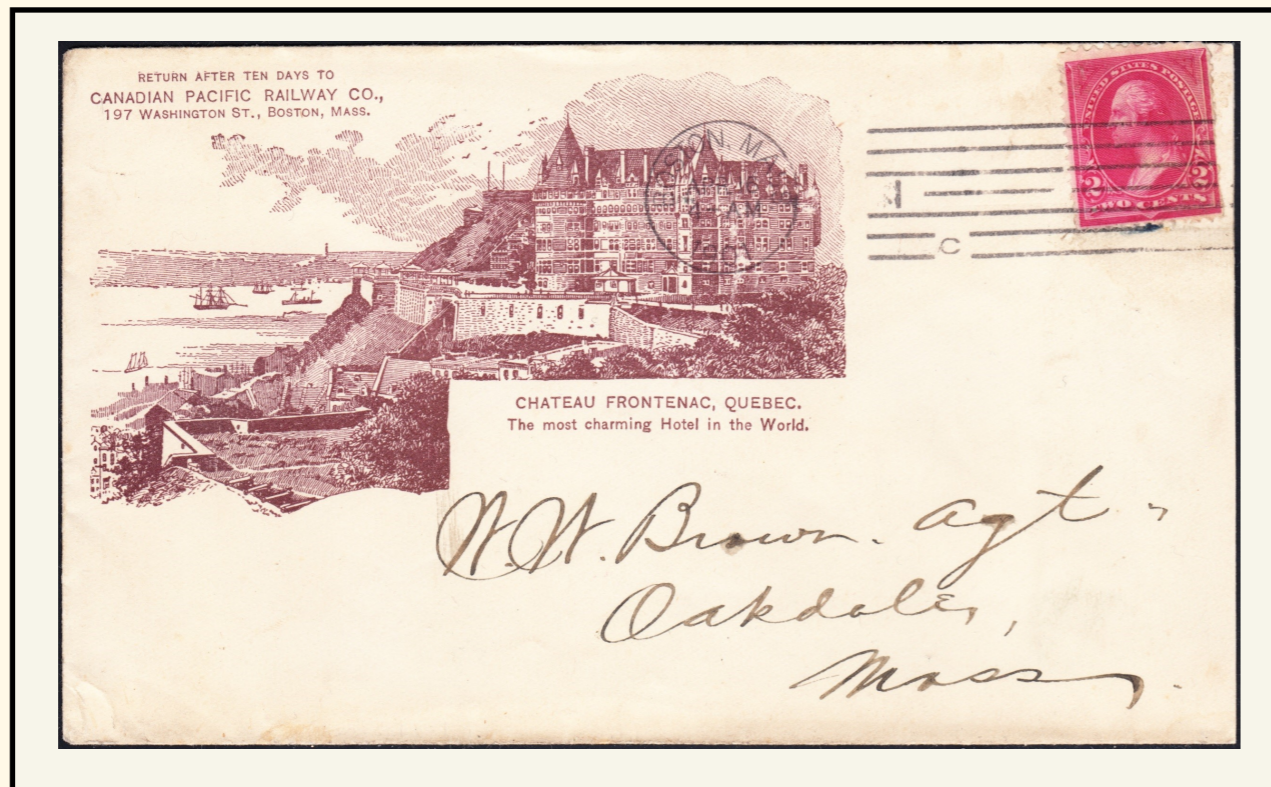 RETURN AFTER TEN DAYS TO
CANADIAN PACIFIC RAILWAY CO.,
197 WASHINGTON ST., BOSTON, MASS.
UNITED STATES POSTAGE
2 2
TWO CENTS
BOSTON, MASS.
AM
1
C
CHATEAU FRONTENAC, QUEBEC.
The most charming Hotel in the World.
W. Brown. Agt
Oakdale,
Mass.